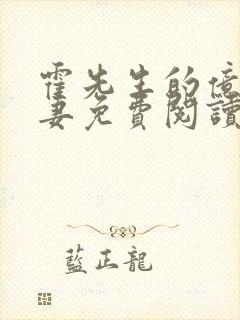 霍先生的億
妻免費閱讀
藍正龍